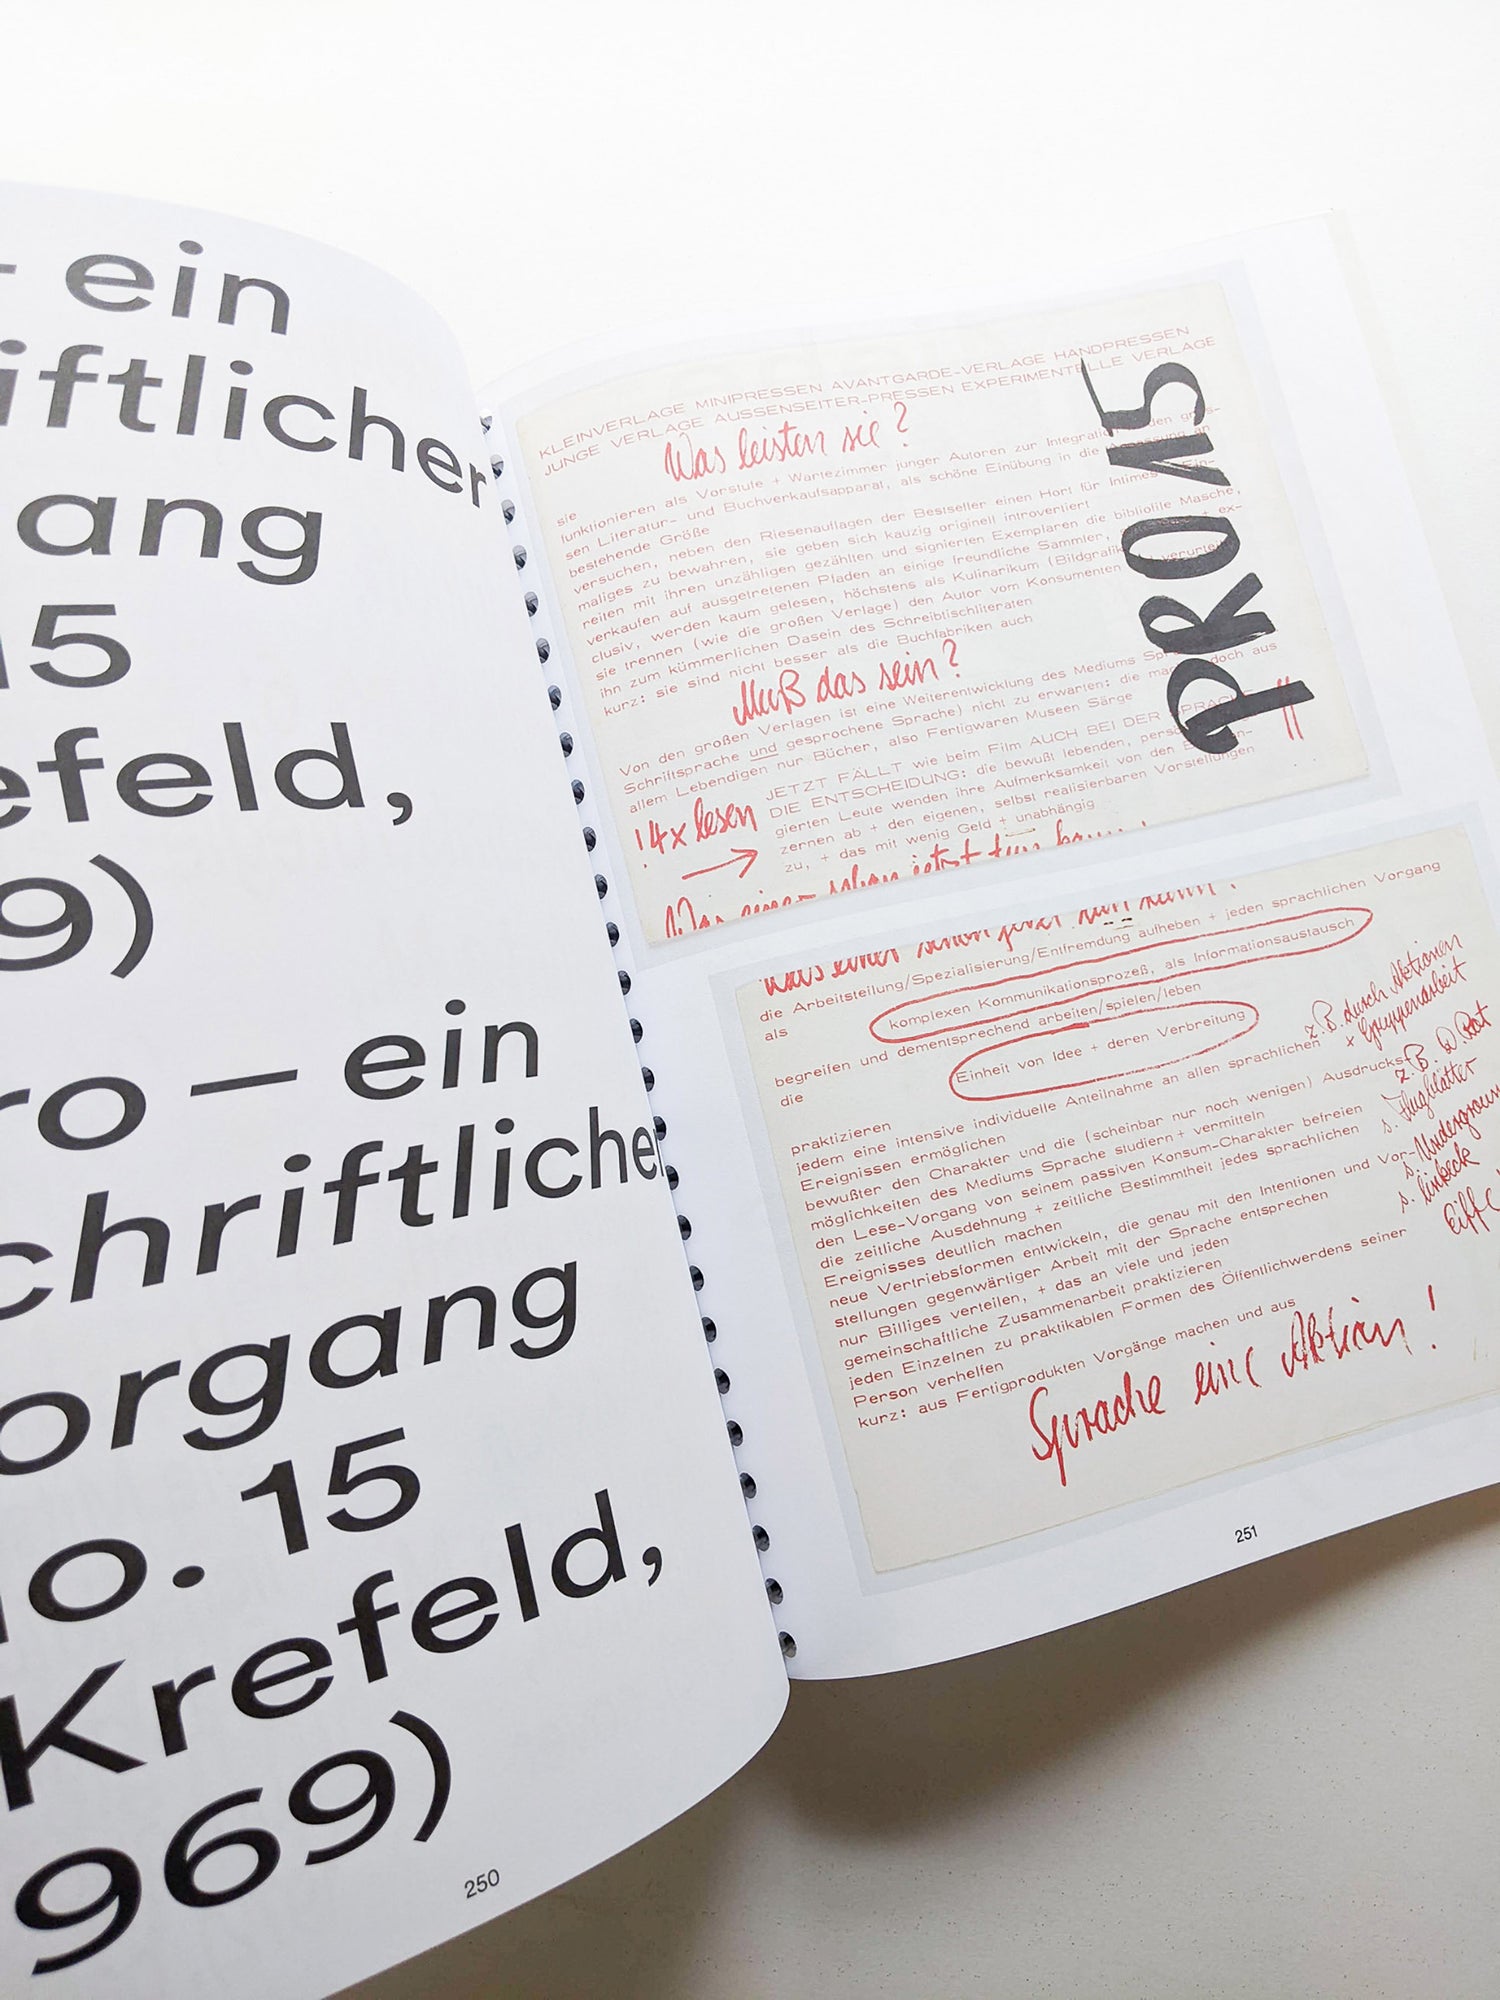 – ein
iftlicher
ang
15
efeld,
9)
ro — ein
chriftlicher
organg
o. 15
Krefeld,
969)
250
KLEINVERLAGE MINIPRESSEN AVANTGARDE-VERLAGE HANDPRESSEN
JUNGE VERLAGE AUSSENSEITER-PRESSEN EXPERIMENTELLE VERLAGE
Was leisten sie?
sie
funktionieren als Vorstufe + Wartezimmer junger Autoren zur Integration den gros-
sen Literatur- und Buchverkaufsapparat, als schöne Einübung in die Anpassung an
bestehende Größe
versuchen, neben den Riesenauflagen der Bestseller einen Hort für Intimes + Ein-
maliges zu bewahren, sie geben sich kauzig originell introvertiert
reiten mit ihren unzähligen gezählten und signierten Exemplaren die bibliofile Masche,
verkaufen auf ausgetretenen Pfaden an einige freundliche Sammler, + ex-
clusiv, werden kaum gelesen, höchstens als Kulinarikum (Bildgrafik verurteilt
sie trennen (wie die großen Verlage) den Autor vom Konsumenten
ihn zum kümmerlichen Dasein des Schreibtischliteraten
kurz: sie sind nicht besser als die Buchfabriken auch
Muß das sein?
Von den großen Verlagen ist eine Weiterentwicklung des Mediums
Schriftsprache und gesprochene Sprache) nicht zu erwarten: die doch aus
allem Lebendigen nur Bücher, also Fertigwaren Museen Särge
JETZT FÄLLT wie beim Film AUCH BEI DER SPRACHE
DIE ENTSCHEIDUNG: die bewußt lebenden,
gierten Leute wenden ihre Aufmerksamkeit von den
zernen ab + den eigenen, selbst realisierbaren Vorstellungen
zu, + das mit wenig Geld + unabhängig
!4x lesen
PRO 15
Was einer schon jetzt tun kann!
die Arbeitsteilung/Spezialisierung/Entfremdung aufheben + jeden sprachlichen Vorgang
als
komplexen Kommunikationsprozeß, als Informationsaustausch
begreifen und dementsprechend arbeiten/spielen/leben
die
Einheit von Idee + deren Verbreitung
praktizieren
jedem eine intensive individuelle Anteilnahme an allen sprachlichen
Ereignissen ermöglichen
bewußter den Charakter und die (scheinbar nur noch wenigen) Ausdrucks-
möglichkeiten des Mediums Sprache studiern + vermitteln
den Lese-Vorgang von seinem passiven Konsum-Charakter befreien
die zeitliche Ausdehnung + zeitliche Bestimmtheit jedes sprachlichen
Ereignisses deutlich machen
neue Vertriebsformen entwickeln, die genau mit den Intentionen und Vor-
stellungen gegenwärtiger Arbeit mit der Sprache entsprechen
nur Billiges verteilen, + das an viele und jeden
gemeinschaftliche Zusammenarbeit praktizieren
jeden Einzelnen zu praktikablen Formen des Öffentlichwerdens seiner
Person verhelfen
kurz: aus Fertigprodukten Vorgänge machen und aus
Sprache eine Aktion!
z.B. durch Aktionen
+ Gruppenarbeit
z.B. D. Rot
s. Flugblätter
s. Underground
s. linbeck
251